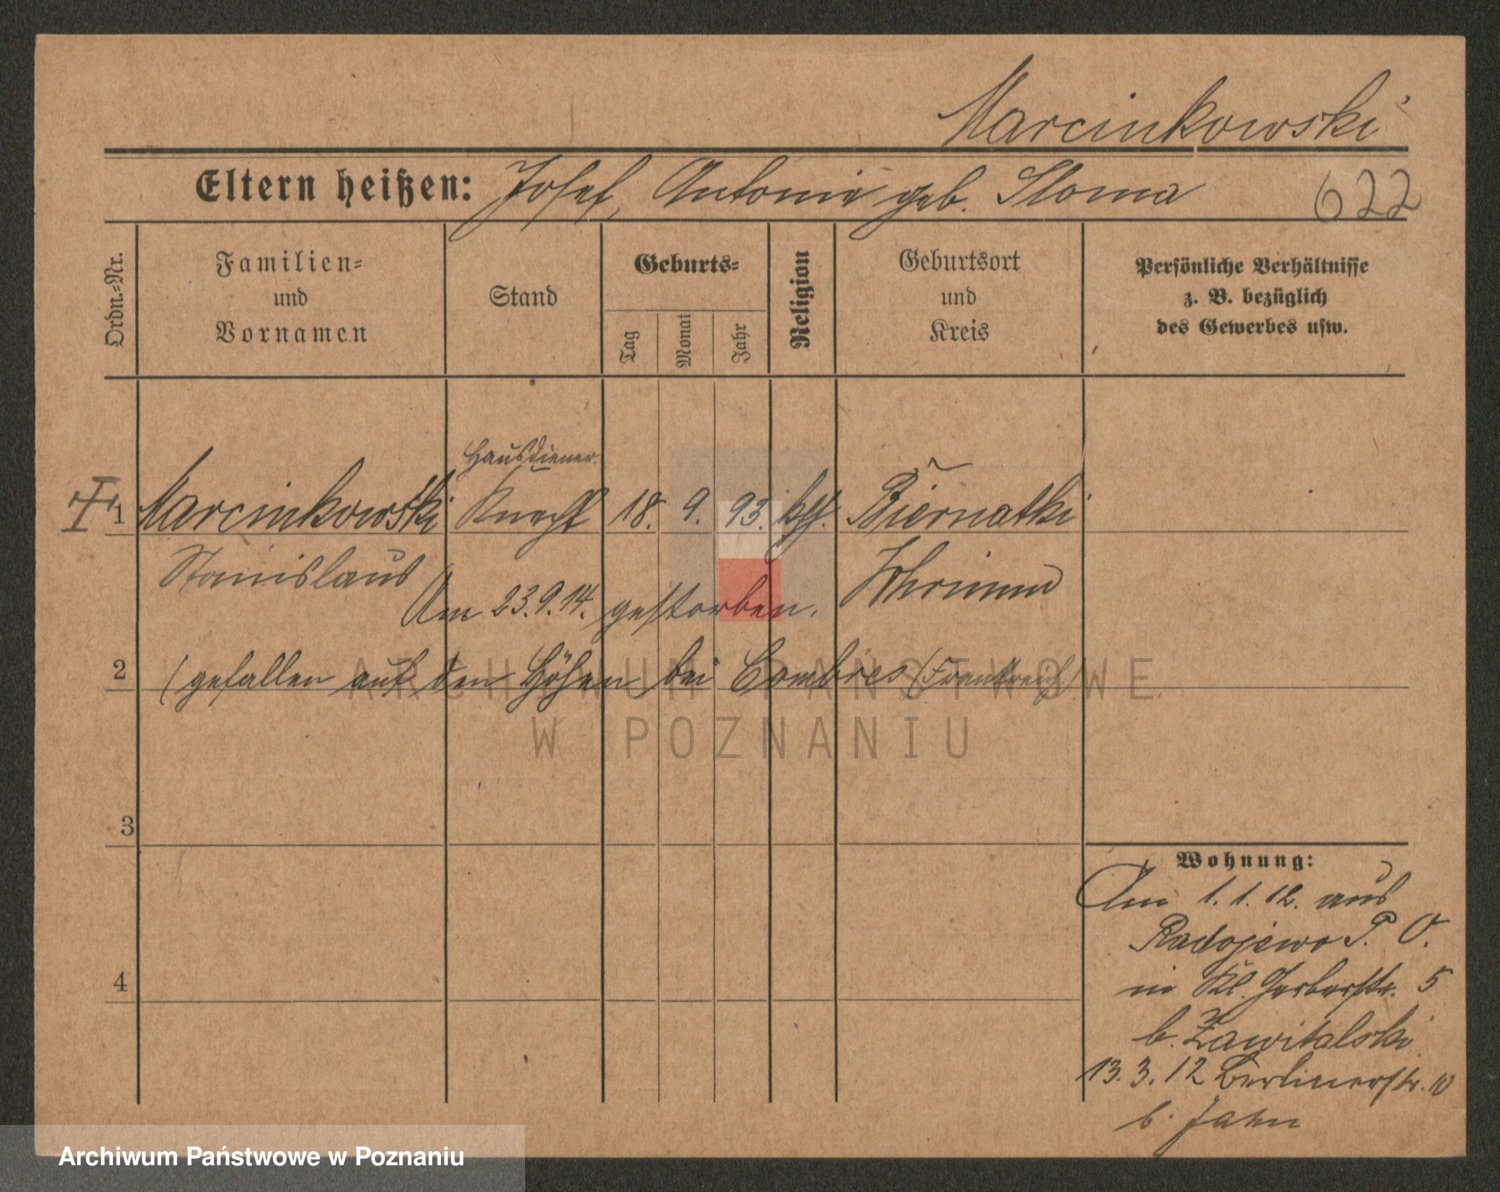 Marcinkowski
Eltern heißen: Josef, Antonie geb. Sloma
622
Ordn.-Nr.
Familien-
und
Vornamen
Stand
Geburts-
Tag
Monat
Jahr
Religion
Geburtsort
und
Kreis
Persönliche Verhältnisse
z. B. bezüglich
des Gewerbes usw.
Hausdiener
1 Marcinkowski Knecht 18. 9. 93. kth. Biernatki
Stanislaus Schrimm
Am 23.9.14. gestorben.
2 (gefallen auf den Höhen bei Combres (Frankreich)
ARCHIWUM PAŃSTWOWE
W POZNANIU
3
4
Wohnung:
Am 1. 1. 12. aus
Radojewo P. O.
in Kl. Gerberstr. 5
b. Zawitalski
13. 3. 12 Berlinerstr. 10
b. Jahn
Archiwum Państwowe w Poznaniu